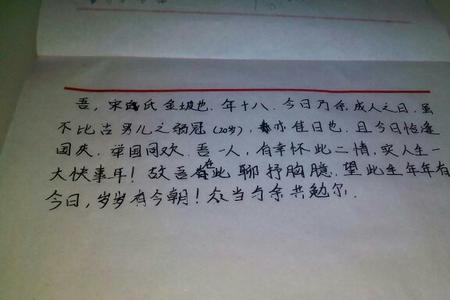 吾，宋氏金坡也.年十八.今日乃余成人之日.虽
不比古男儿之弱冠(20岁)，亦佳日也.且今日恰逢
国庆.举国同欢.吾一人，有幸怀此二情，实人生一
大快事耳！故在此聊抒胸臆.望此生年年有
今日，岁岁有今朝！众当与余共勉尔.